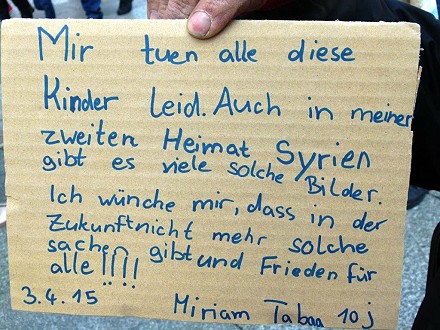 Mir tuen alle diese
Kinder Leid. Auch in meiner
zweiten Heimat Syrien
gibt es viele solche Bilder.
Ich wünche mir, dass in der
Zukunft nicht mehr solche
sache gibt und Frieden für
alle !!!!
3.4.15 Miriam Tabaa 10 j